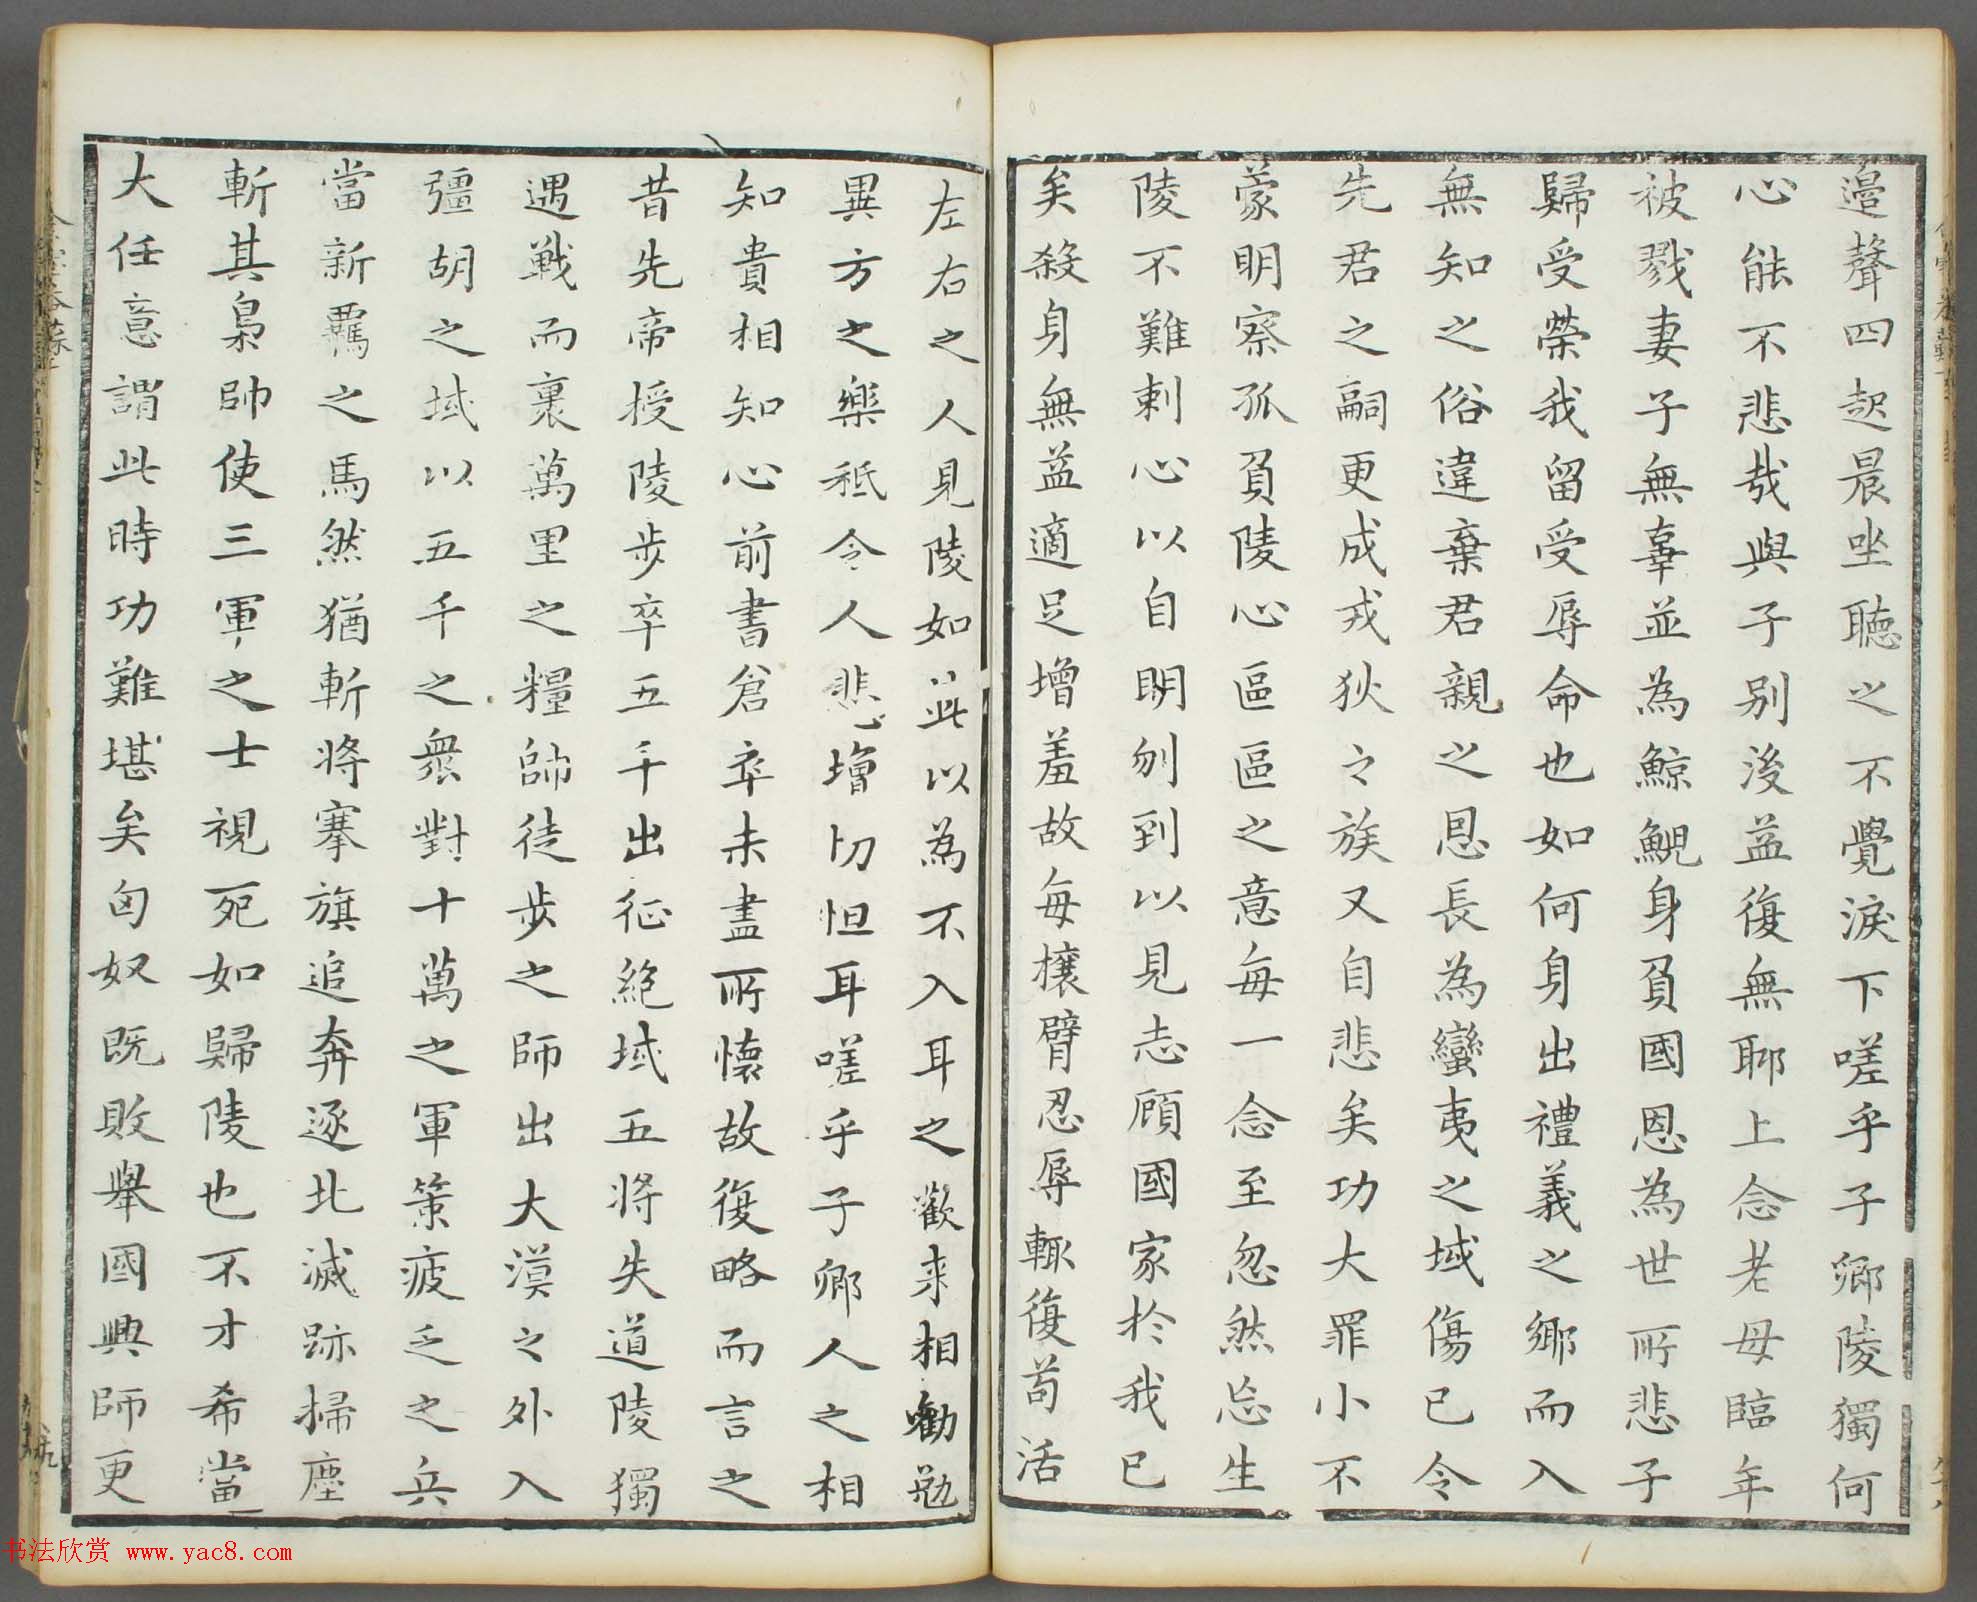 邉聲四起晨坐聽之不覺淚下嗟乎子卿陵獨何
心能不悲哉與子别後益復無耶上念老母臨年
被戮妻子無辜並為鯨鯢身負國恩為世所悲子
歸受榮我留受辱命也如何身出禮義之鄉而入
無知之俗違棄君親之恩長為蠻夷之域傷已令
先君之嗣更成戎狄之族又自悲矣功大罪小不
蒙明察孤負陵心區區之意每一念至忽然忘生
陵不難剌心以自明刎到以見志顧國家於我已
矣殺身無益適足增羞故每攘臂忍辱輙復苟活
左右之人見陵如此以為不入耳之歡来相勸勉
異方之樂秪令人悲增切怛耳嗟乎子卿人之相
知貴相知心前書倉卒未盡所懷故復略而言之
昔先帝授陵步卒五千出征絶域五將失道陵獨
遇戰而裹萬里之糧帥徒步之師出大漠之外入
彊胡之域以五千之衆對十萬之軍策疲乏之兵
當新羈之馬然猶斬將搴旗追奔逐北滅跡掃塵
斬其梟帥使三軍之士視死如歸陵也不才希當
大任意謂此時功難堪矣匈奴既敗舉國興師更
书法欣赏 www.yac8.com